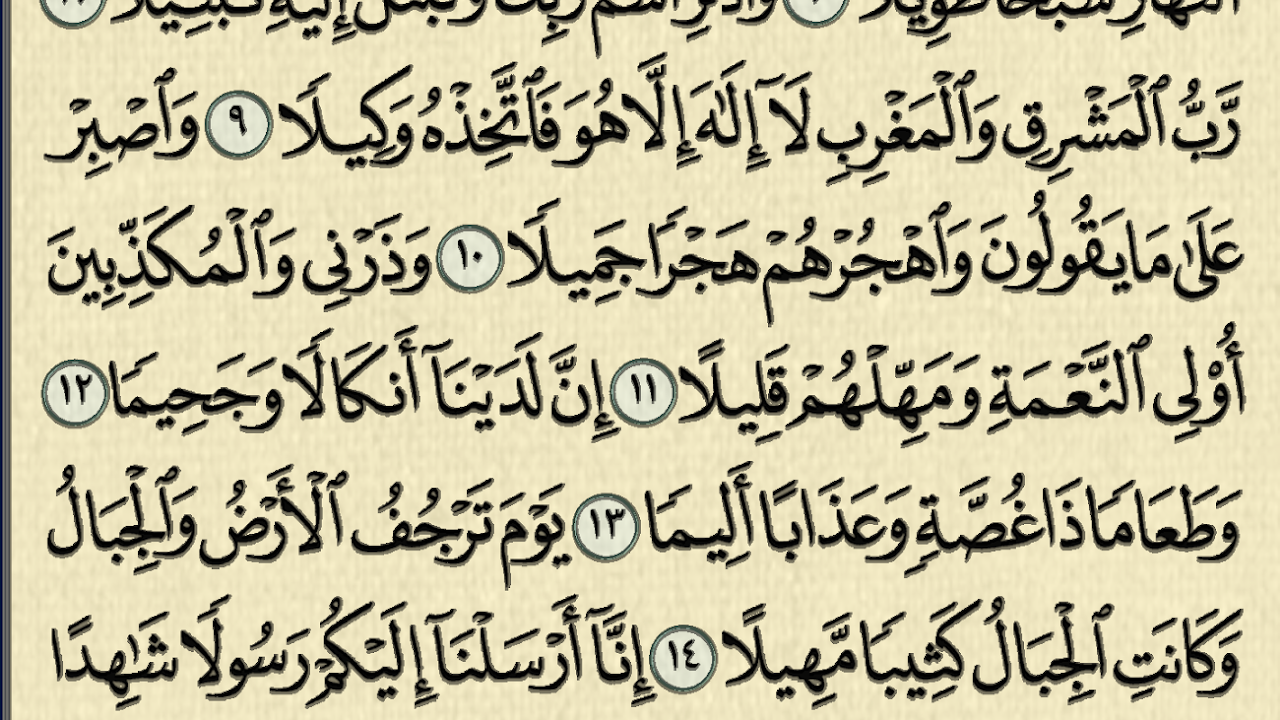 ٱلنَّهَارِ سَبۡحٗا طَوِيلٗا ٧ وَٱذۡكُرِ ٱسۡمَ رَبِّكَ وَتَبَتَّلۡ إِلَيۡهِ تَبۡتِيلٗا ٨
رَّبُّ ٱلۡمَشۡرِقِ وَٱلۡمَغۡرِبِ لَآ إِلَٰهَ إِلَّا هُوَ فَٱتَّخِذۡهُ وَكِيلٗا ٩ وَٱصۡبِرۡ
عَلَىٰ مَا يَقُولُونَ وَٱهۡجُرۡهُمۡ هَجۡرٗا جَمِيلٗا ١٠ وَذَرۡنِي وَٱلۡمُكَذِّبِينَ
أُوْلِي ٱلنَّعۡمَةِ وَمَهِّلۡهُمۡ قَلِيلًا ١١ إِنَّ لَدَيۡنَآ أَنكَالٗا وَجَحِيمٗا ١٢
وَطَعَامٗا ذَا غُصَّةٖ وَعَذَابًا أَلِيمٗا ١٣ يَوۡمَ تَرۡجُفُ ٱلۡأَرۡضُ وَٱلۡجِبَالُ
وَكَانَتِ ٱلۡجِبَالُ كَثِيبٗا مَّهِيلًا ١٤ إِنَّآ أَرۡسَلۡنَآ إِلَيۡكُمۡ رَسُولٗا شَٰهِدًا